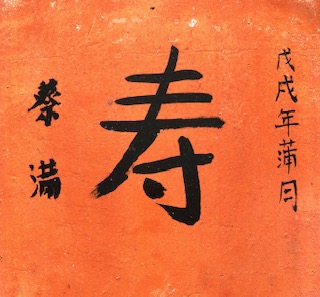 戊戌年蒲月
寿
蔡满